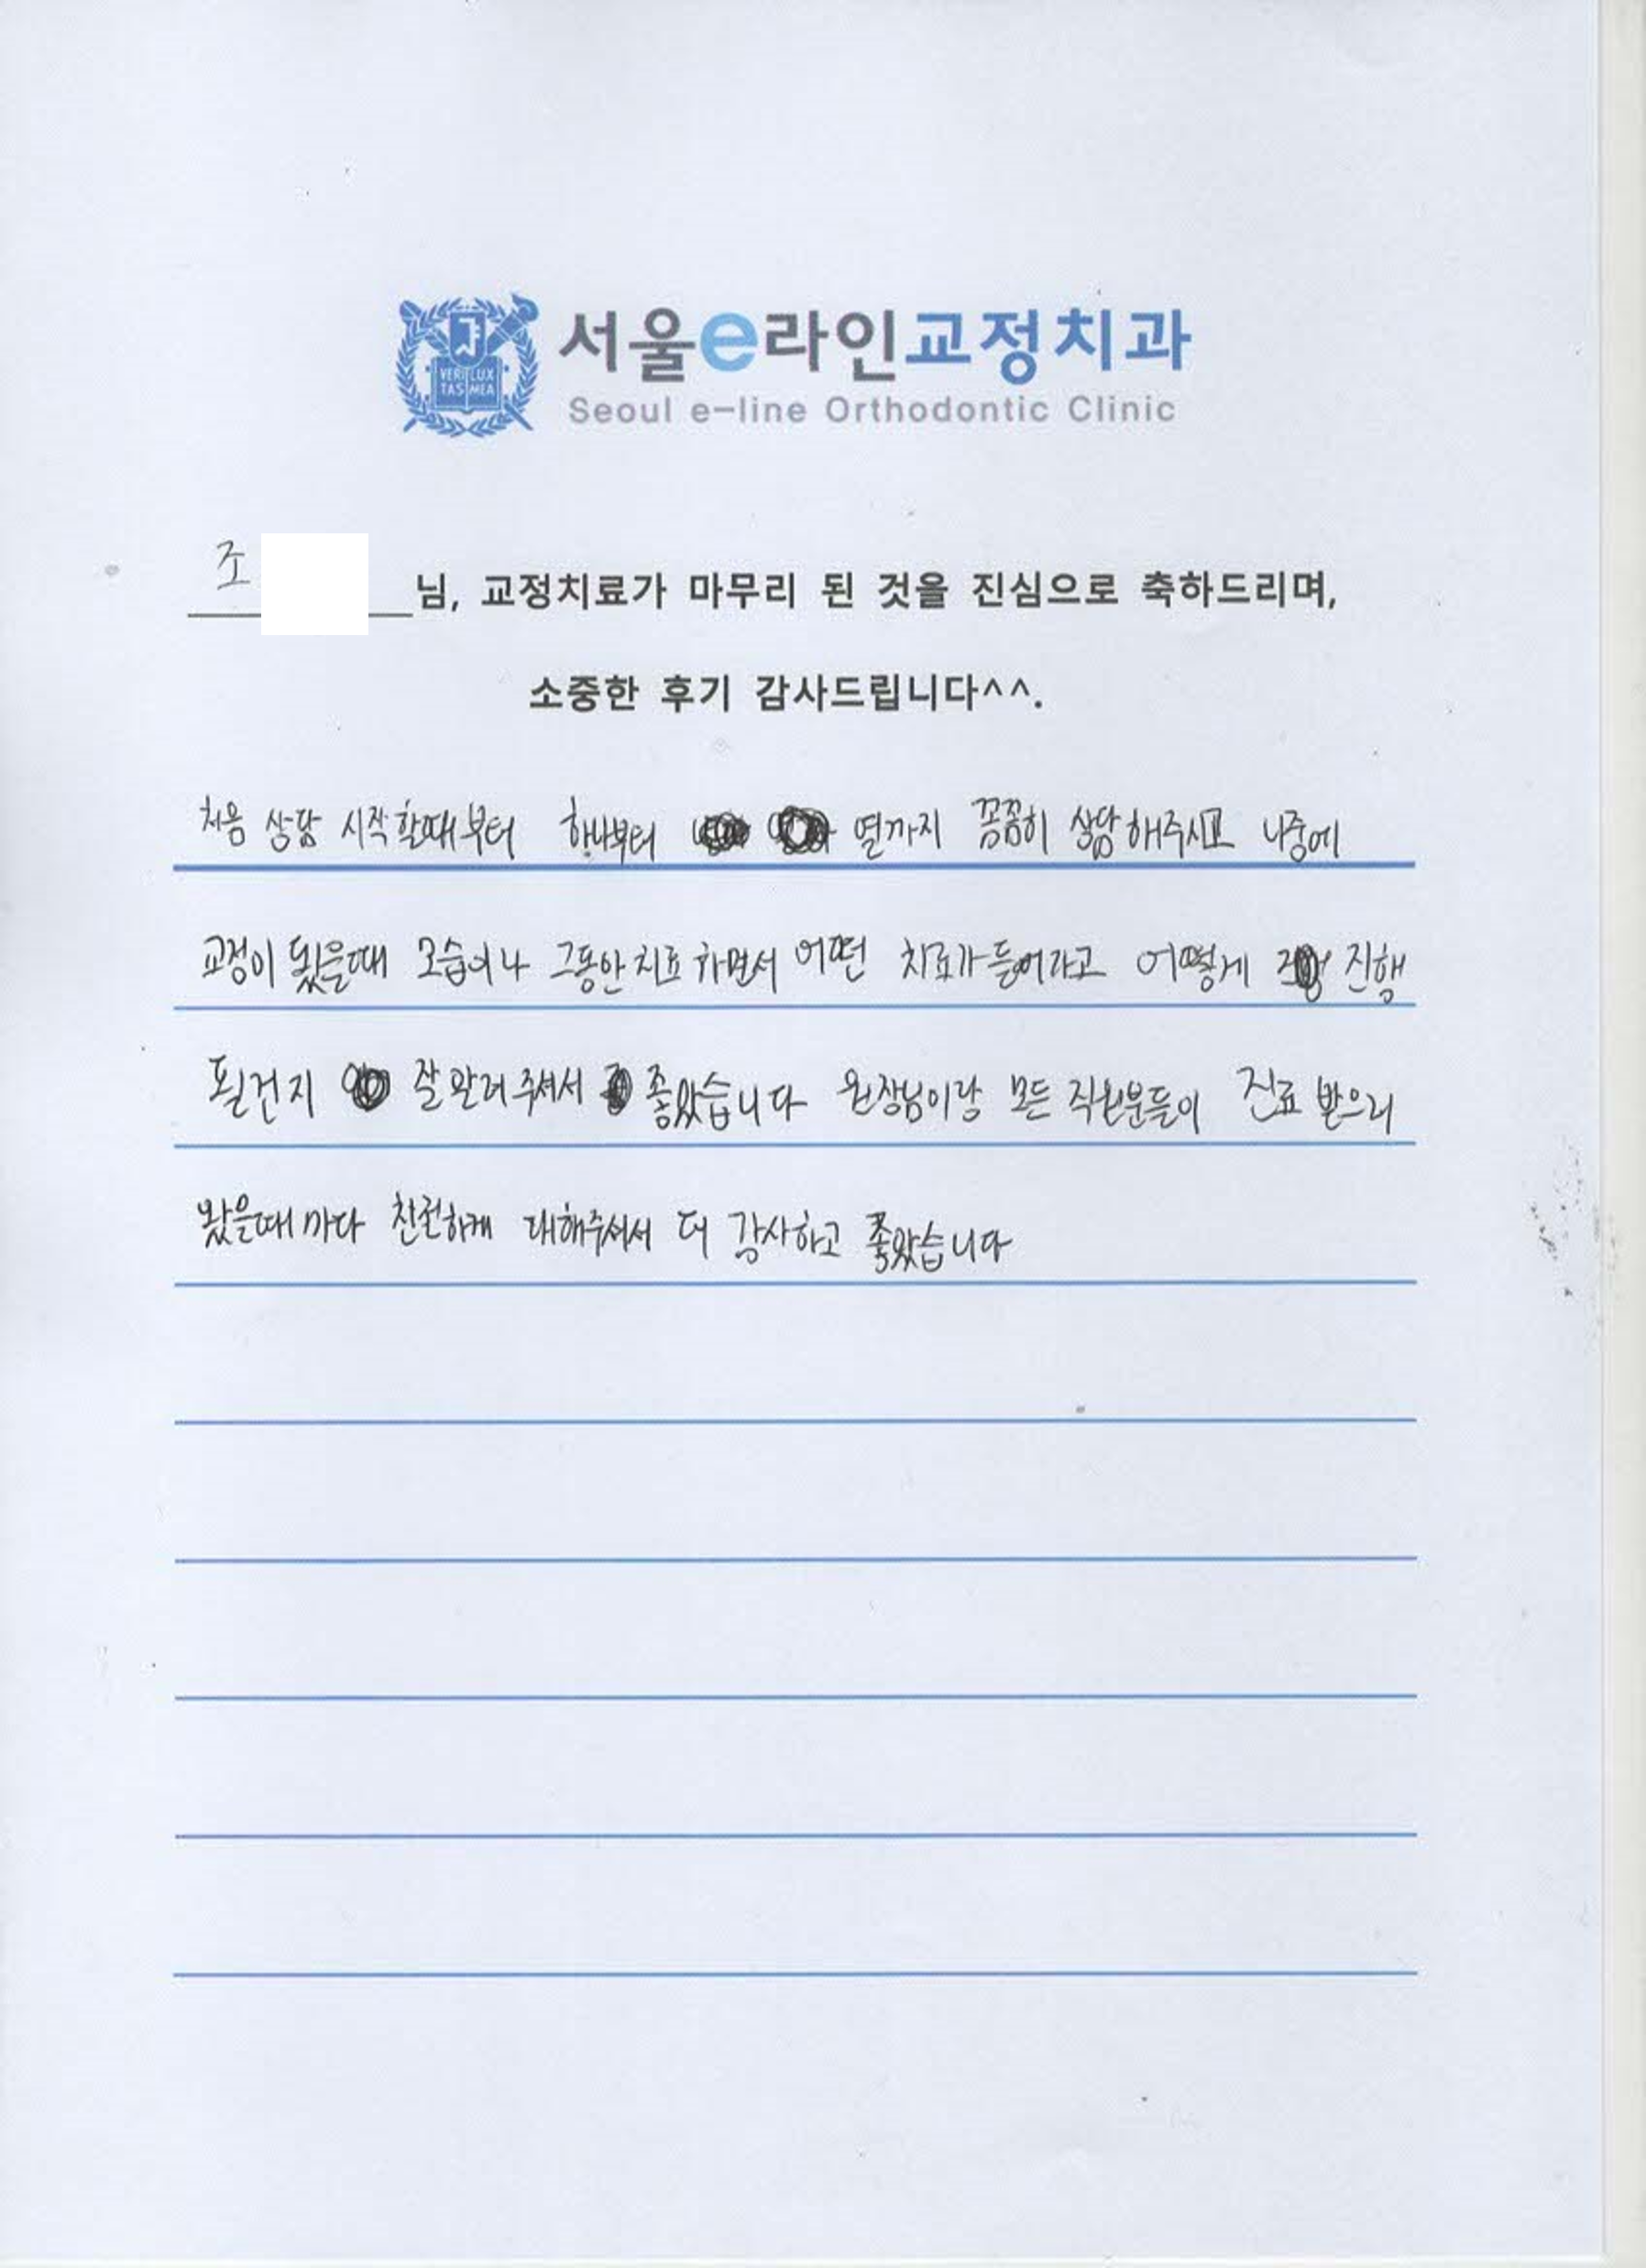 VERI LUX
TAS MEA
서울e라인교정치과
Seoul e-line Orthodontic Clinic
조 님, 교정치료가 마무리 된 것을 진심으로 축하드리며,
소중한 후기 감사드립니다^^.
처음 상담 시작할때부터 하나부터 열까지 꼼꼼히 상담해주시고 나중에
교정이 됬을때 모습이나 그동안 치료하면서 어떤 치료가 들어라고 어떻게 진행
될건지 잘 알려주셔서 좋았습니다 원장님이랑 모든 직원분들이 진료 받으러
왔을때마다 친절하게 대해주셔서 더 감사하고 좋았습니다